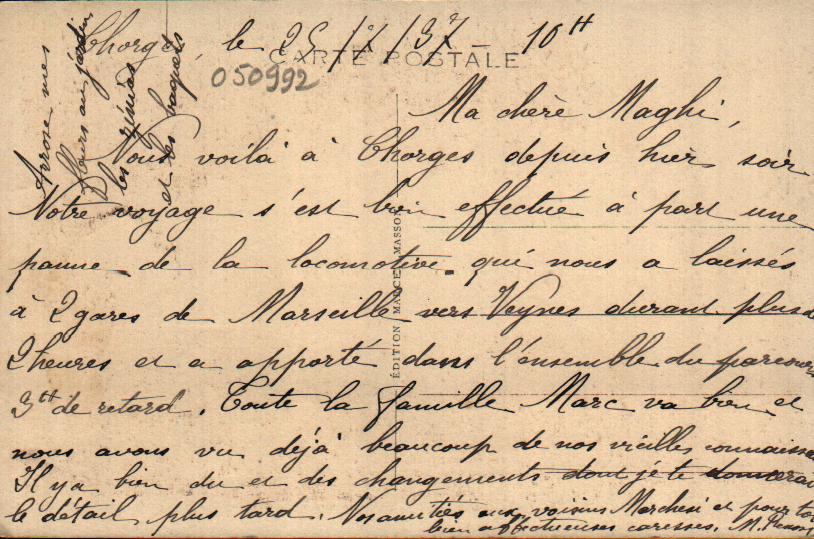 Chorges, le 25/X/37 - 10H
CARTE POSTALE
050992
Ma chère Maghi,
Nous voilà à Chorges depuis hier soir
Notre voyage s'est bien effectué à part une
panne de la locomotive qui nous a laissés
à 2 gares de Marseille vers Veynes durant plus de
2 heures et a apporté dans l'ensemble du parcours
3H de retard. Toute la famille Marc va bien et
nous avons vu déjà beaucoup de nos vieilles
Il y a bien du et des changements dont je te donnerai
le détail plus tard. Nos amitiés aux voisins Marchesi et pour toi
bien affectueuses caresses. M.
Arrose mes
fleurs au jardin
les
et les baquets
ÉDITION MARCEL MASSON